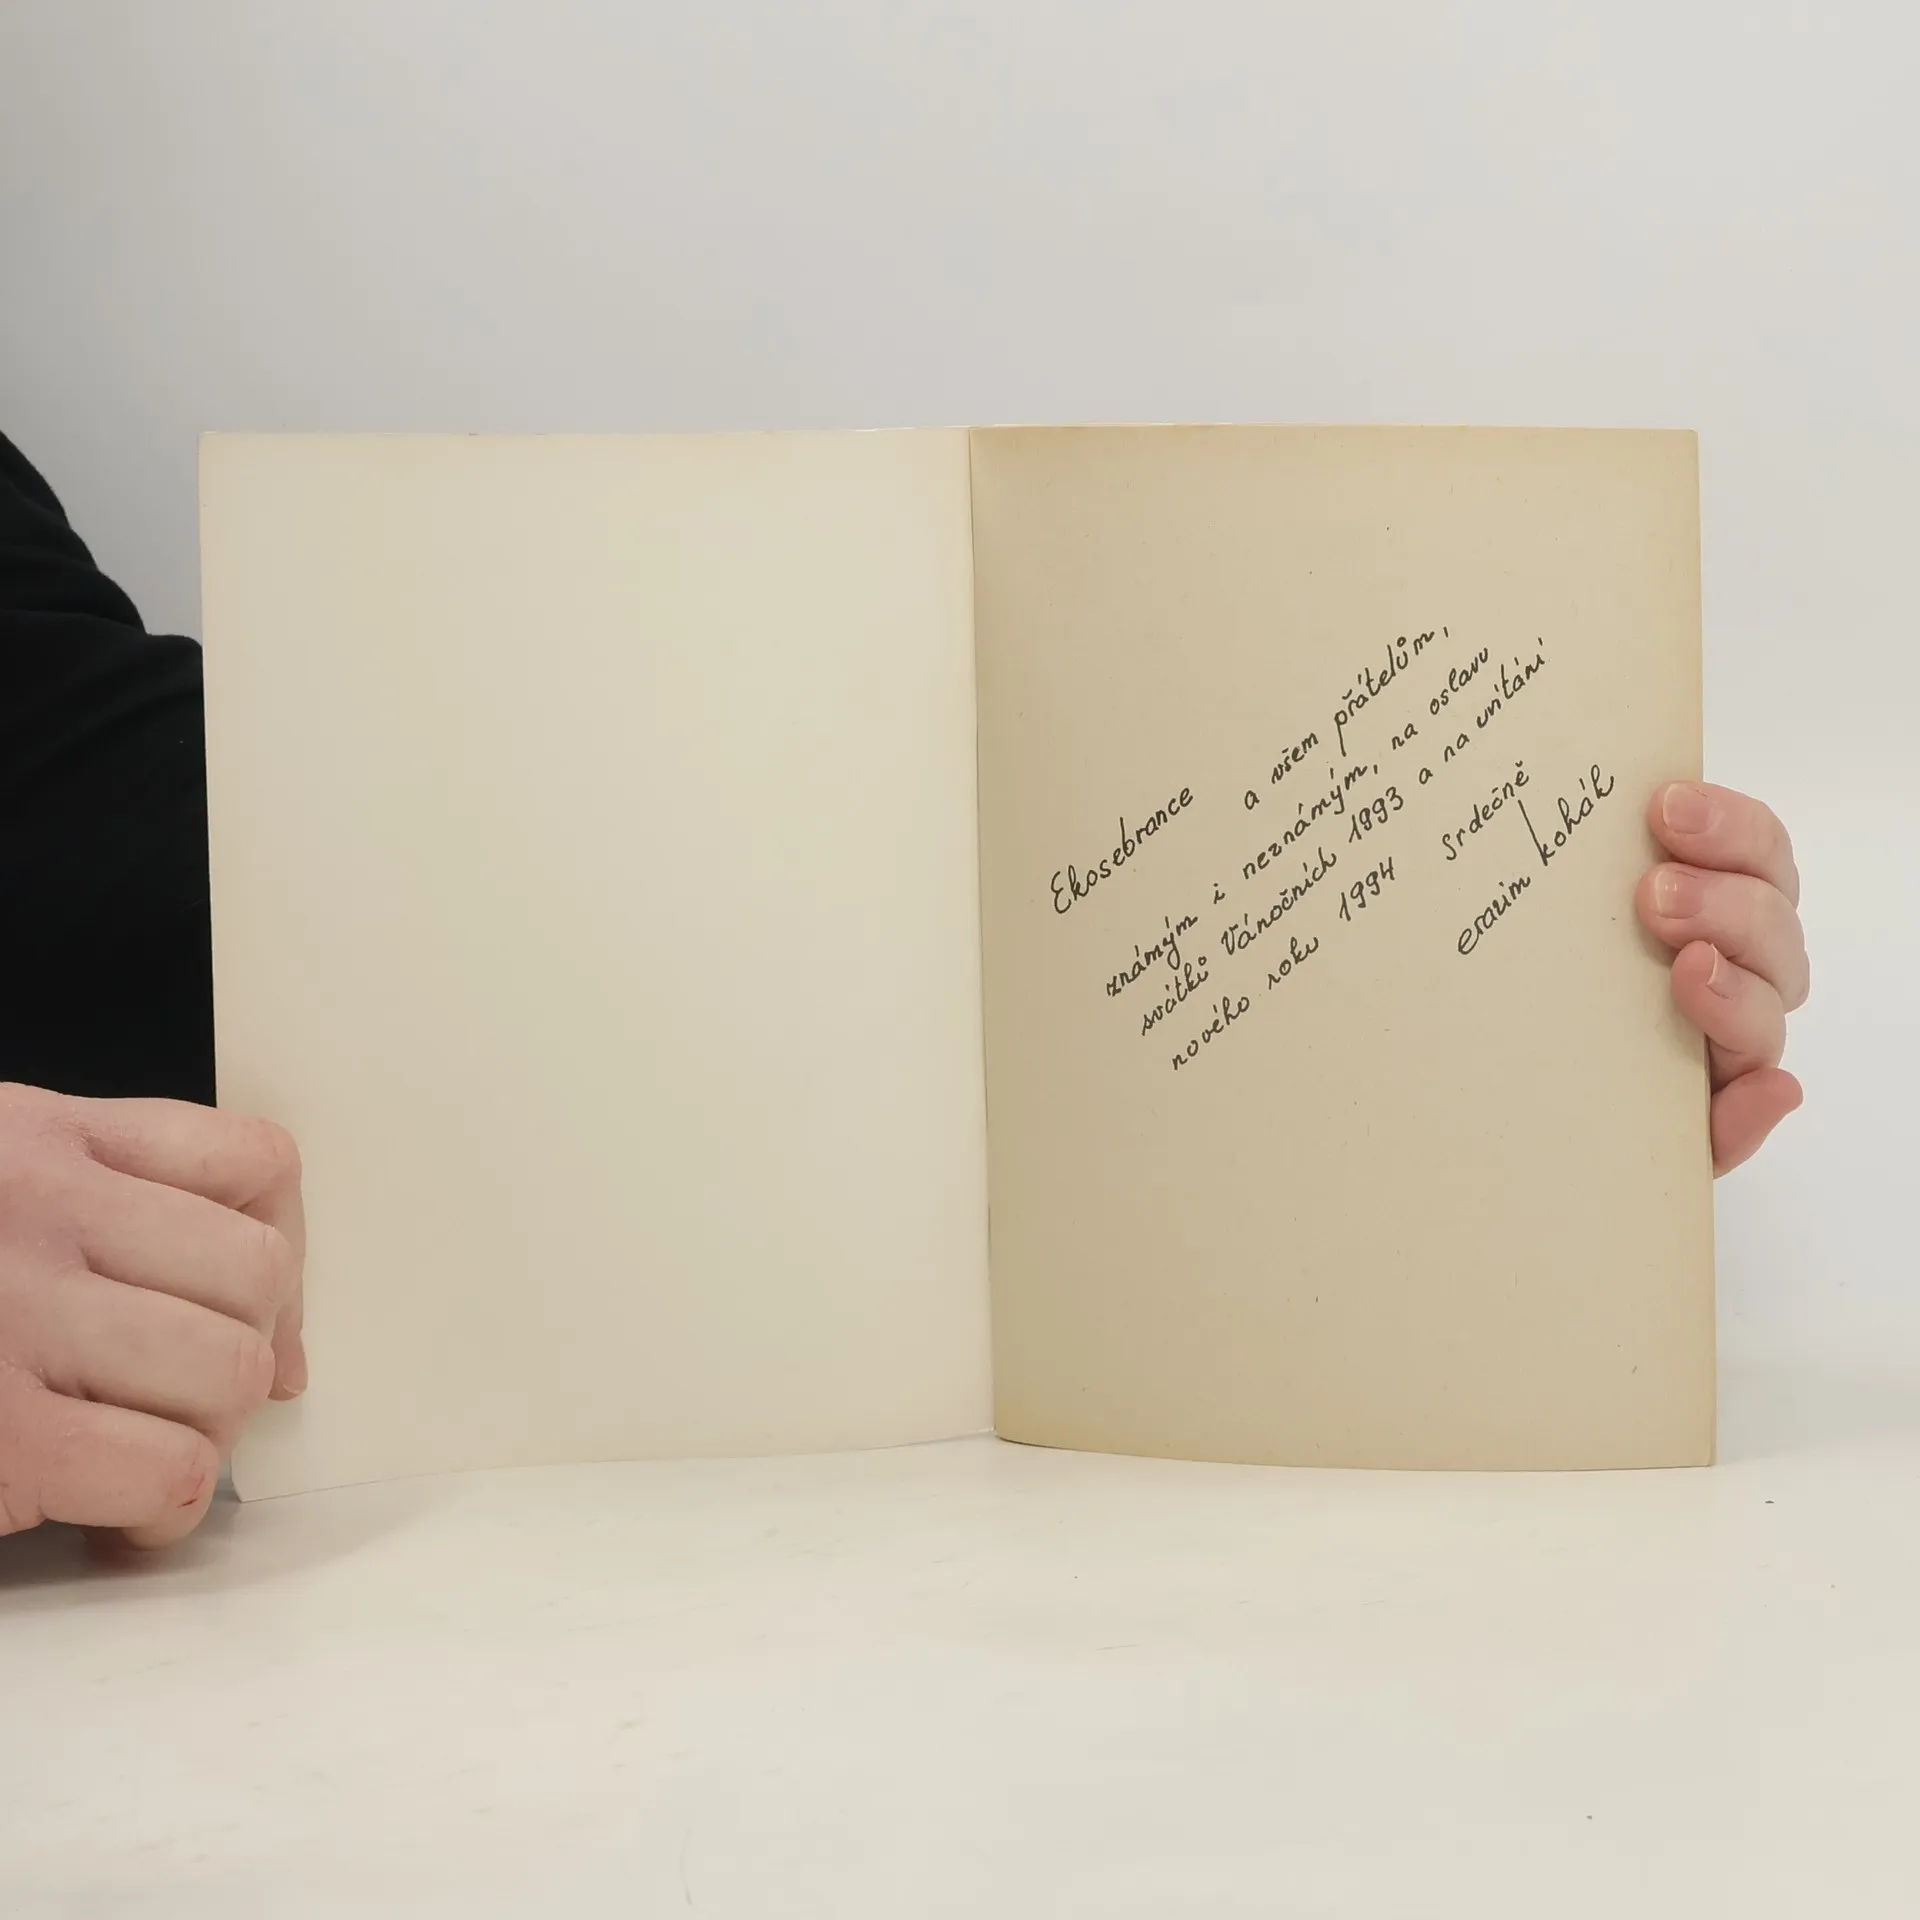 Ekosebrance a všem přátelům,
známým i neznámým, na oslavu
svátků Vánočních 1993 a na uvítání
nového roku 1994 srdečně
erazim kohák